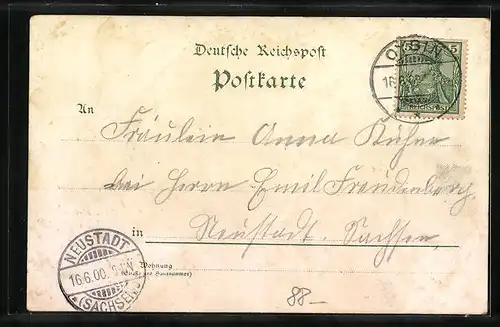 Deutsche Reichspost
Postkarte
OYBIN
16.6.00
5
REICHSPOST
An
Fräulein Anna Kühne
bei Herrn Emil Freudenberg
in Neustadt, Sachsen,
NEUSTADT
16.6.00.
(SACHSEN)
Wohnung
(Straße und Hausnummer)
88-